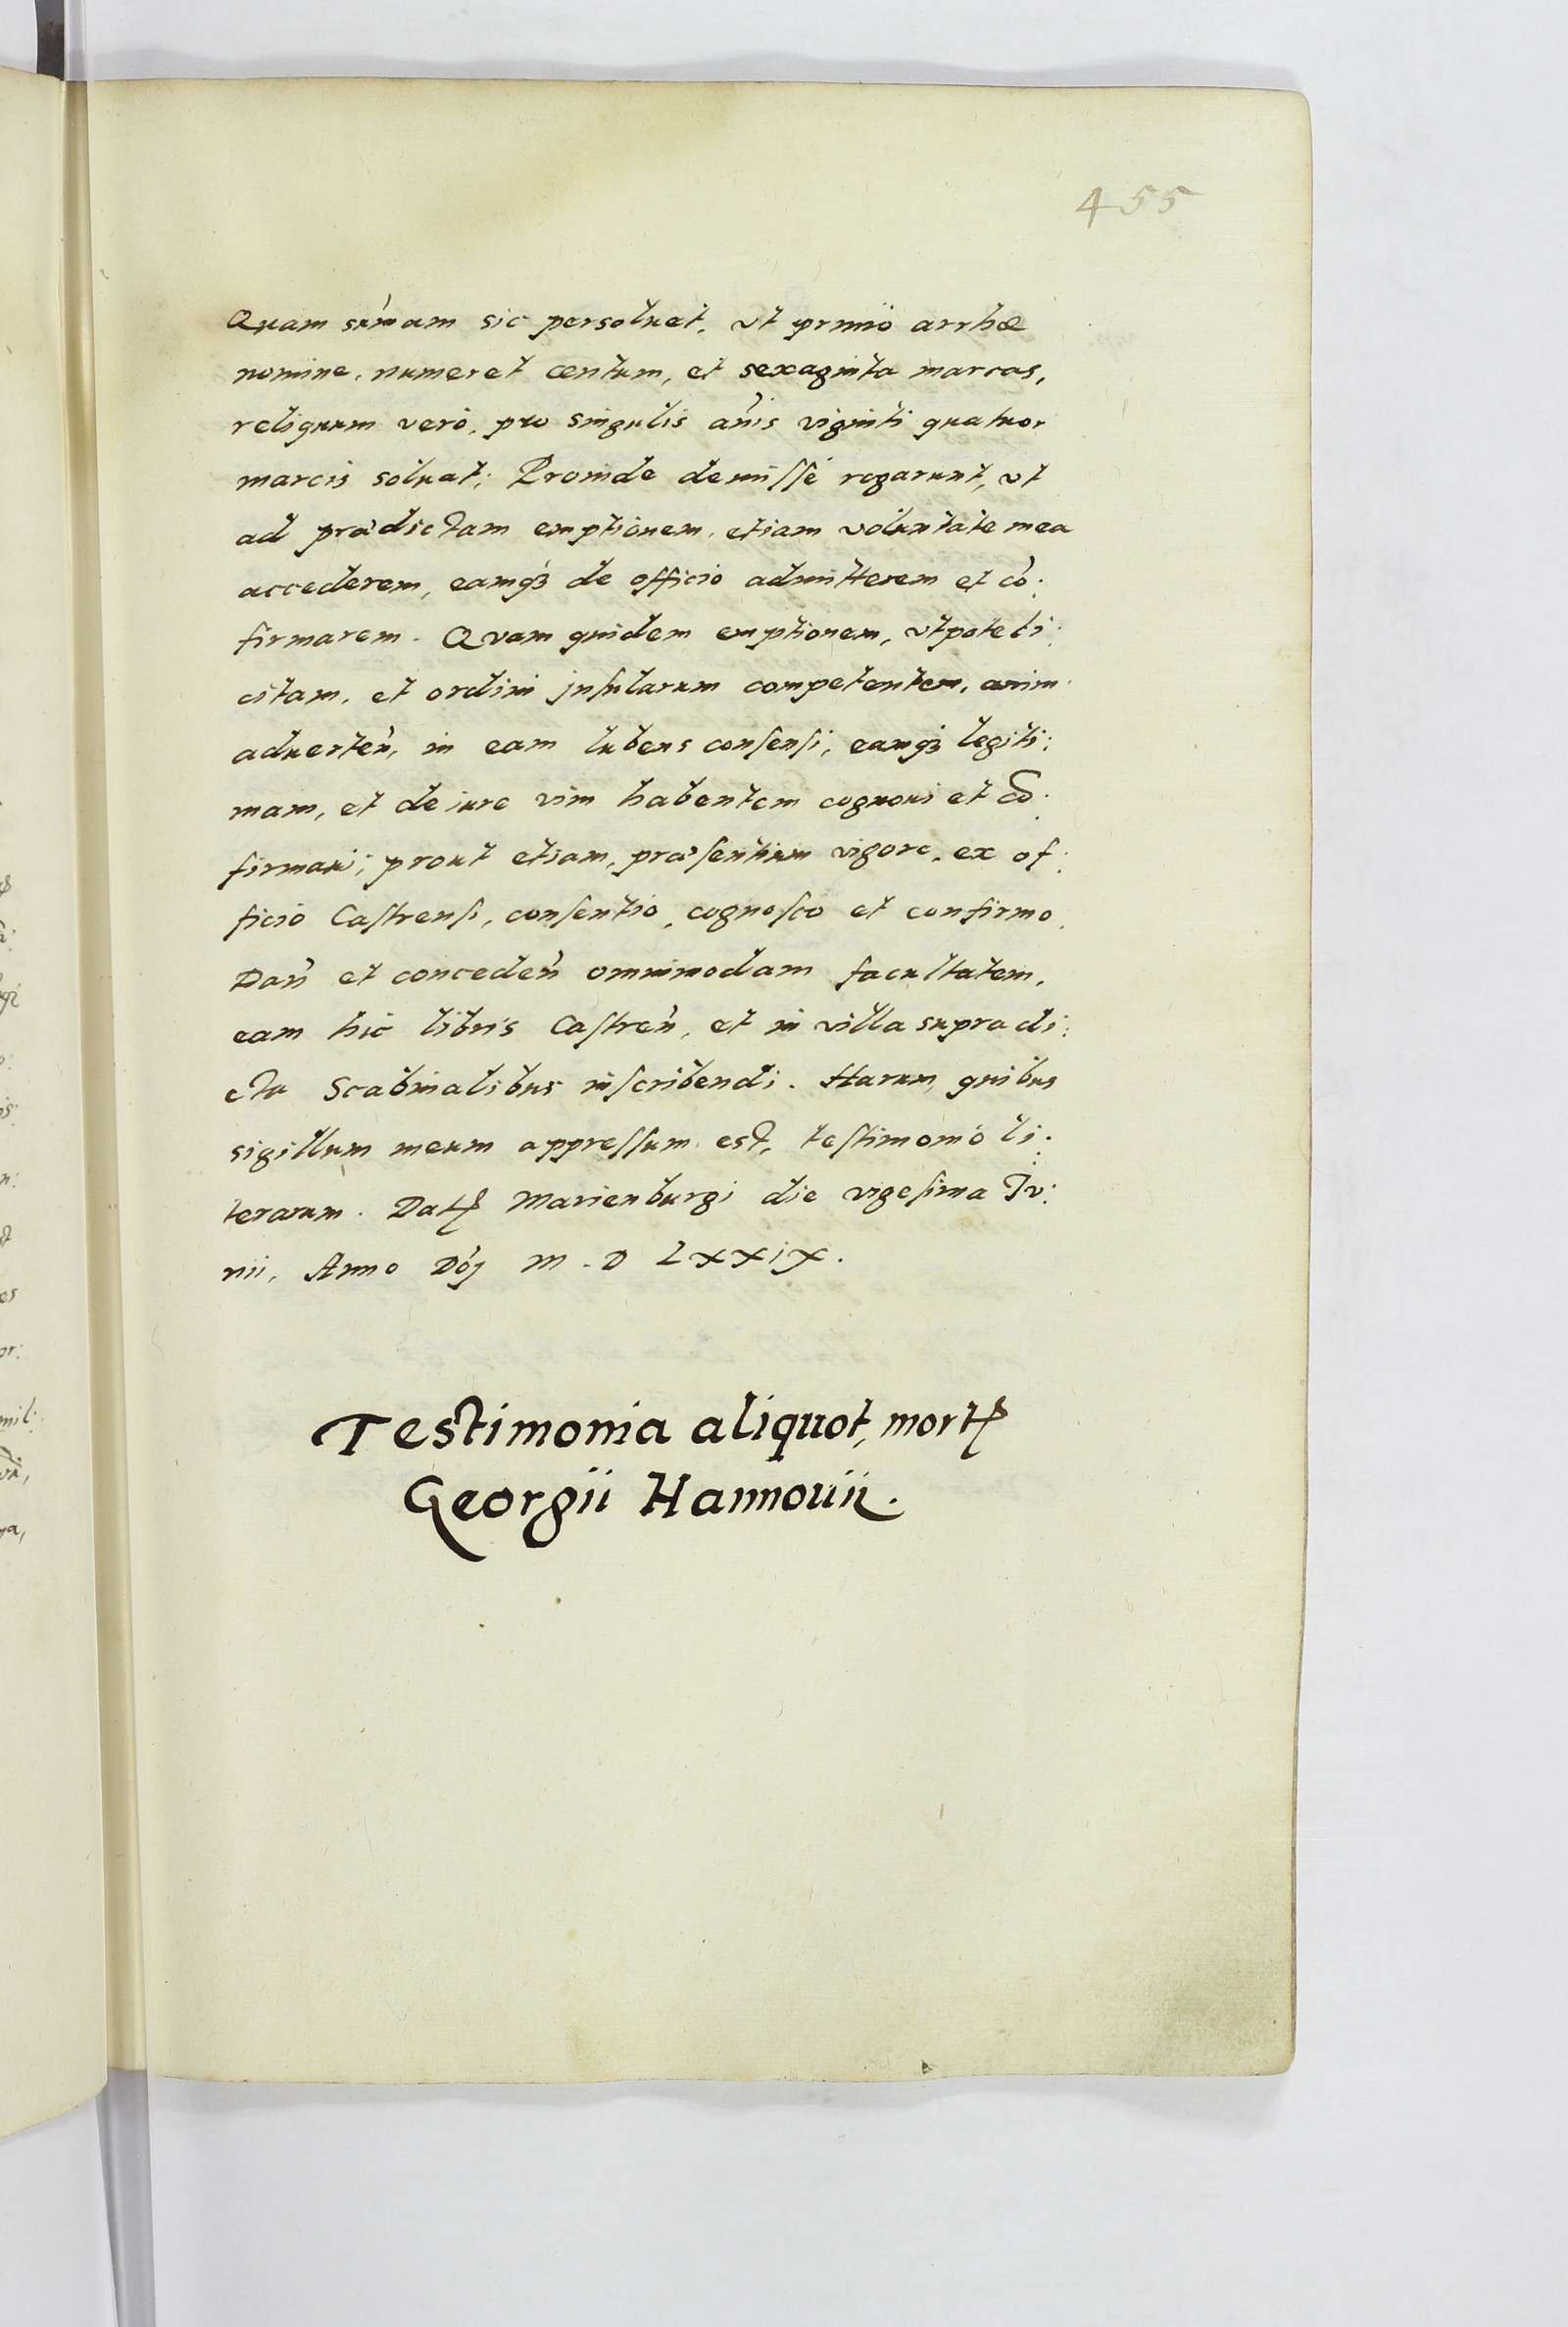 455
Quam sum̃am sic persoluet, vt primò arrhæ
nomine, numeret centum, et sexaginta marcas,
reliquum verò, pro singulis añis viginti quatuor
marcis soluat; Proinde demissè rogarunt, vt
ad prædictam emptionem, etiam voluntate mea
accederem, eamq3 de officio admitterem et cõ:
firmarem. Quam quidem emptionem, vtpote li:
citam, et ordini insularum competentem, anim
aduerteñ, in eam lubens consensi, eamq3 legiti:
mam, et de iure vim habentem cognoui et cõ:
firmaui; prout etiam, præsentium vigore, ex of:
ficio Castrensi, consentio, cognosco et confirmo.
Dañ et concedeñ omnimodam facultatem,
eam hic libris Castreñ, et in villa supra di:
cta Scabinalibus inscribendi. Harum, quibus
sigillum meum appressum est, testimonio li:
terarum. Datꝭ Marienburgi die vigesima Iu:
nii, Anno Dõj M. D LXXIX.
Testimonia aliquot, mortꝭ
Georgii Hannouii.